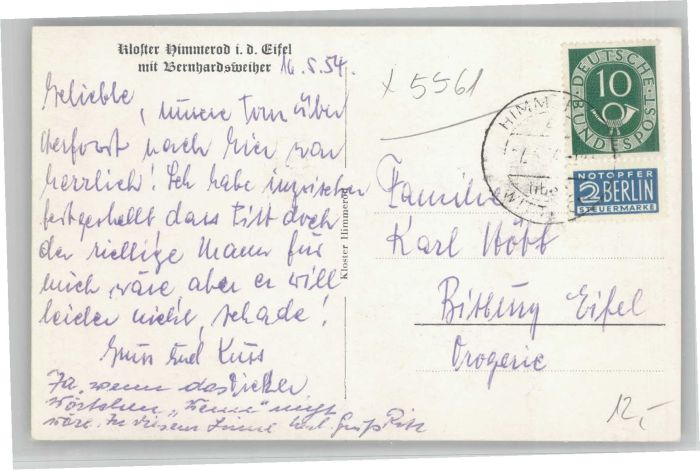 Kloster Himmerod i. d. Eifel
mit Bernhardsweiher
16.5.54.
Geliebte, unsere Tour über
Gerforst nach hier war
herrlich! Ich habe inzwischen
festgestellt dass Pitt doch
der richtige Mann für
mich wäre aber er will
leider nicht, schade!
Gruss und Kuss
Ja, wenn das
Wörtchen „wenn" nicht
wäre. In diesem Sinne Gruß Pitt
Kloster Himmerod
x 5561
DEUTSCHE BUNDESPOST
10
HIMMEROD
NOTOPFER
2 BERLIN
STEUERMARKE
Familie
Karl Nöbb
Bitburg Eifel
Drogerie
12,-